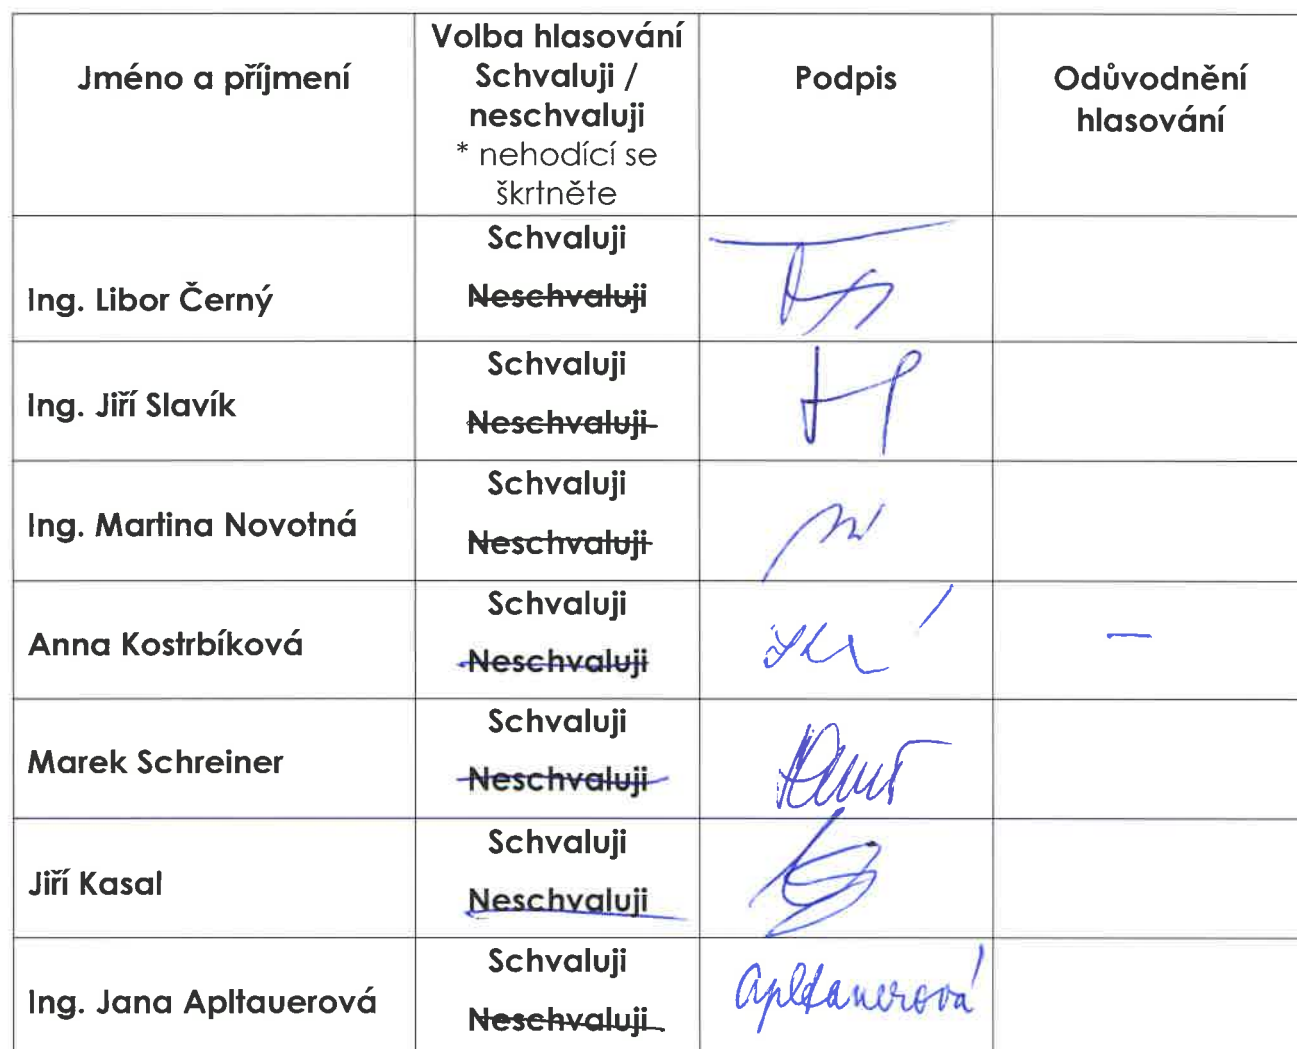 Jméno a příjmení
Volba hlasování
Schvaluji /
neschvaluji
* nehodící se
škrtněte
Podpis
Odůvodnění
hlasování
Ing. Libor Černý
Schvaluji
Neschvaluji
Ing. Jiří Slavík
Schvaluji
Neschvaluji
Ing. Martina Novotná
Schvaluji
Neschvaluji
Anna Kostrbíková
Schvaluji
Neschvaluji
–
Marek Schreiner
Schvaluji
Neschvaluji
Jiří Kasal
Schvaluji
Neschvaluji
Ing. Jana Apltauerová
Schvaluji
Neschvaluji
Apltauerová